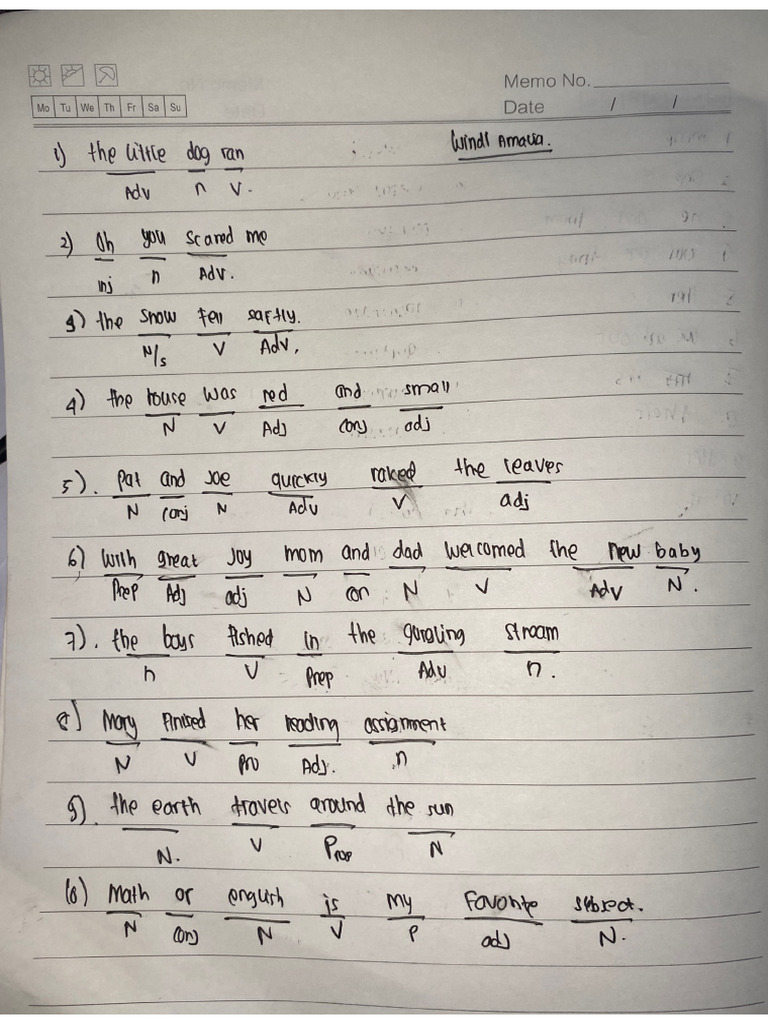 Memo No.
Mo Tu We Th Fr Sa Su
Date / /
1) the little dog ran Windi Amalia.
Adv n v.
2) Oh you scared me
inj n Adv.
3) the snow fell softly.
N/s V Adv.
4) the house was red and small
N V Adj conj adj
5). Pat and Joe quickly raked the leaves
N conj N Adv V adj
6) With great Joy mom and dad welcomed the new baby
Prep Adj adj N con N V Adv N.
7). the boys fished in the gurgling stream
n V Prep Adv n.
8) Mary finised her reading assignment
N V Pro Adj. n
9). the earth travels around the sun
N. V Prop N
10) Math or english is my favorite subject.
N conj N V P adj N.